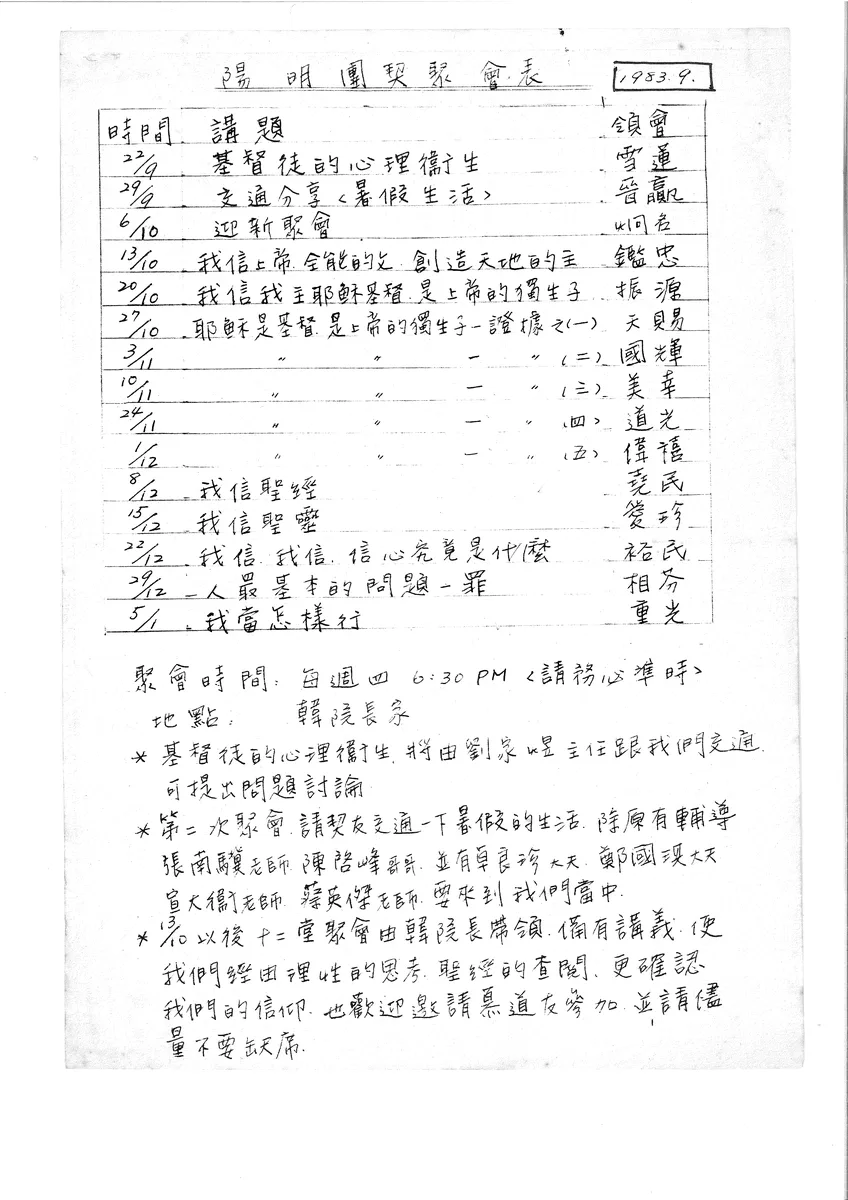 陽明團契聚會表 1983.9.
時間 講題 領會
22/9 基督徒的心理衛生 雪蓮
29/9 交通分享<暑假生活> 晉贏
6/10 迎新聚會 炯名
13/10 我信上帝.全能的父.創造天地的主 鑑忠
20/10 我信我主耶穌基督.是上帝的獨生子 振源
27/10 耶穌是基督.是上帝的獨生子-證據之(一) 天賜
3/11 〃 〃 - 〃 (二) 國輝
10/11 〃 〃 - 〃 (三) 美幸
24/11 〃 〃 - 〃 (四) 道光
1/12 〃 〃 - 〃 (五) 偉禧
8/12 我信聖經 堯民
15/12 我信聖靈 愛珍
22/12 我信.我信.信心究竟是什麼 裕民
29/12 人最基本的問題-罪 相芬
5/1 我當怎樣行 重光
聚會時間: 每週四 6:30 PM <請務心準時>
地點: 韓院長家
* 基督徒的心理衛生.將由劉家煜主任跟我們交通.
可提出問題討論
* 第二次聚會.請契友交通一下暑假的生活.除原有輔導
張南驥老師.陳啓峰哥哥.並有卓良珍大夫.鄭國漢大夫
宣大衛老師.蔡英傑老師.要來到我們當中.
* 13/10以後十二堂聚會由韓院長帶領.備有講義.便
我們經由理性的思考.聖經的查閱.更確認
我們的信仰.也歡迎邀請慕道友參加.並請儘
量不要缺席.